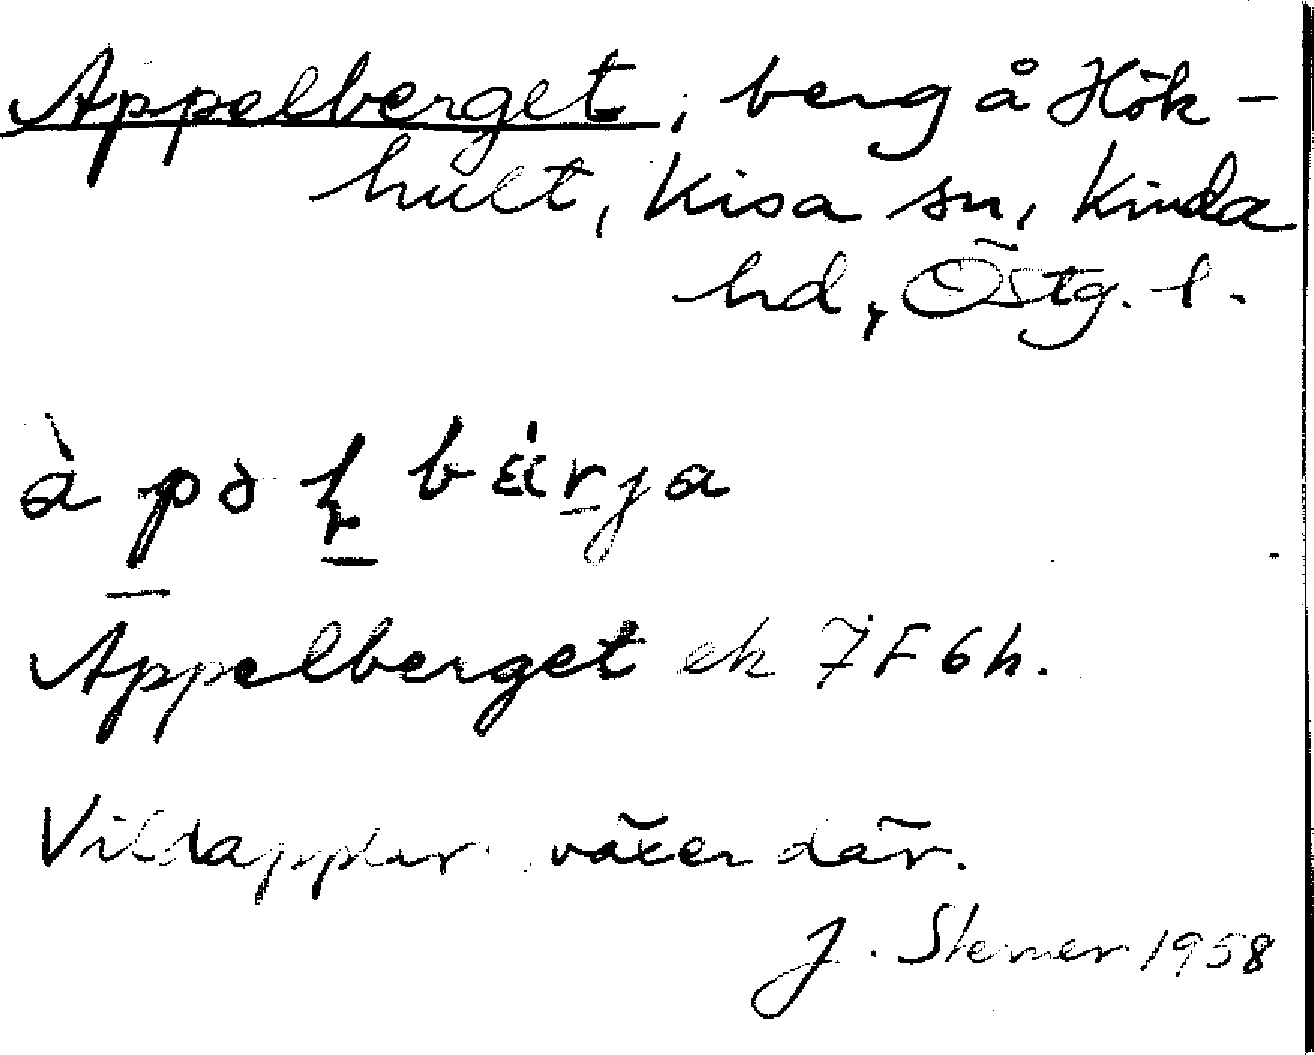 Appelberget, berg å Hök-
hult, Kisa sn, Kinda
hd, Östg. l.
Appelberget ek 7F6h.
Vildapplar växer där.
J. Sterner 1958